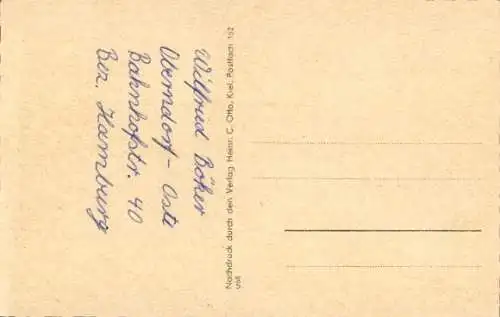 Wilfried Böker
Oberndorf-Oste
Bahnhofstr. 40
Bez. Hamburg
Nachdruck durch den Verlag Heinr. C. Otto, Kiel, Postfach 152